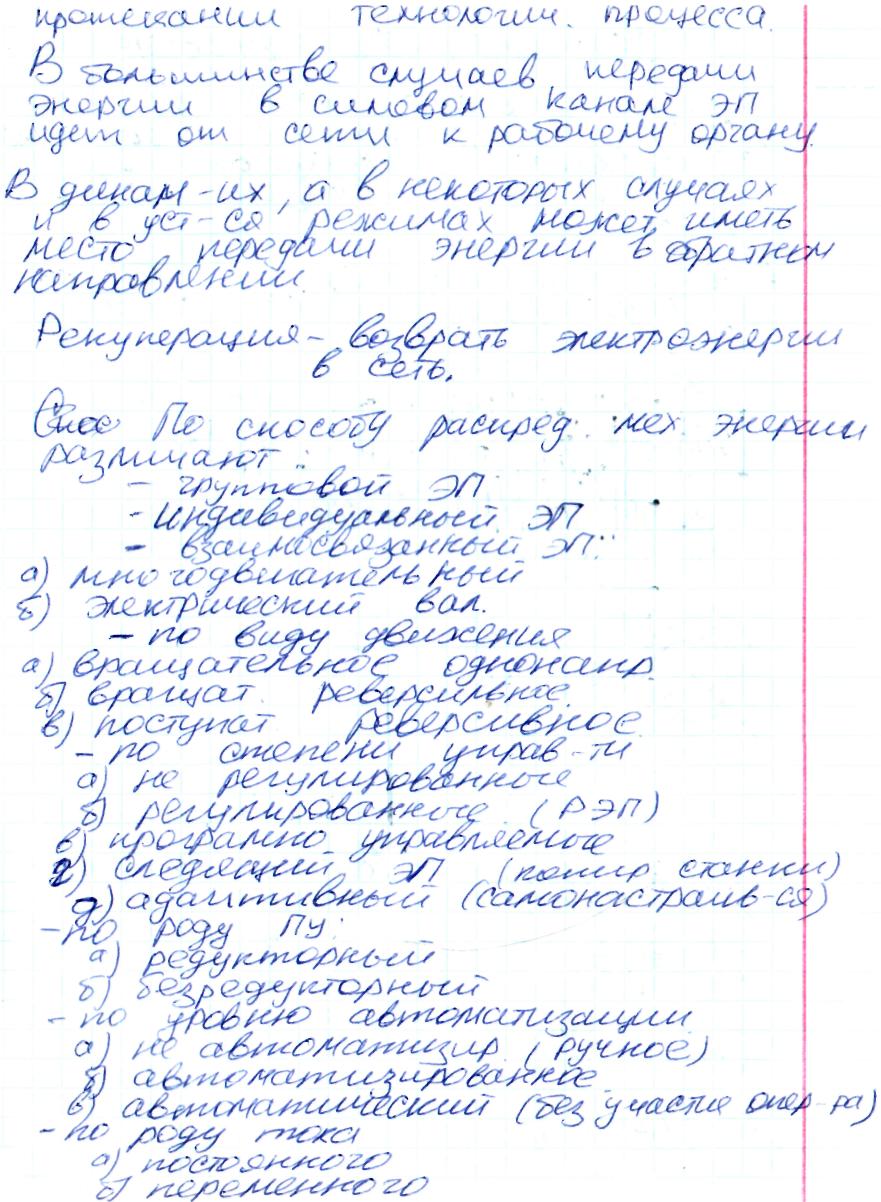 протекании технологич. процесса.
В большинстве случаев передачи
энергии в силовом канале ЭП
идет от сети к рабочему органу.
В динам-их, а в некоторых случаях
и в уст-ся режимах может иметь
место передачи энергии в обратном
направлении.
Рекуперация - возврать электроэнергии
в сеть.
По способу распред. мех энергии
различают:
- групповой ЭП
- индивидуальный ЭП
- взаимосвязанный ЭП:
а) многодвигательный
б) электрический вал.
- по виду движения
а) вращательное однонапр.
б) вращат. реверсильное.
в) поступат реверсивное.
- по степени управ-ти
а) не регулированные
б) регулированные (РЭП)
в) програмно управляемые
г) следящий ЭП (копир станки)
д) адаптивный (самонастраив-ся)
- по роду ПУ:
а) редукторный
б) безредукторный
- по уровню автоматизации
а) не автоматизир. (ручное)
б) автоматизированное
в) автоматический (без участие опер-ра)
- по роду тока
а) постоянного
б) переменного